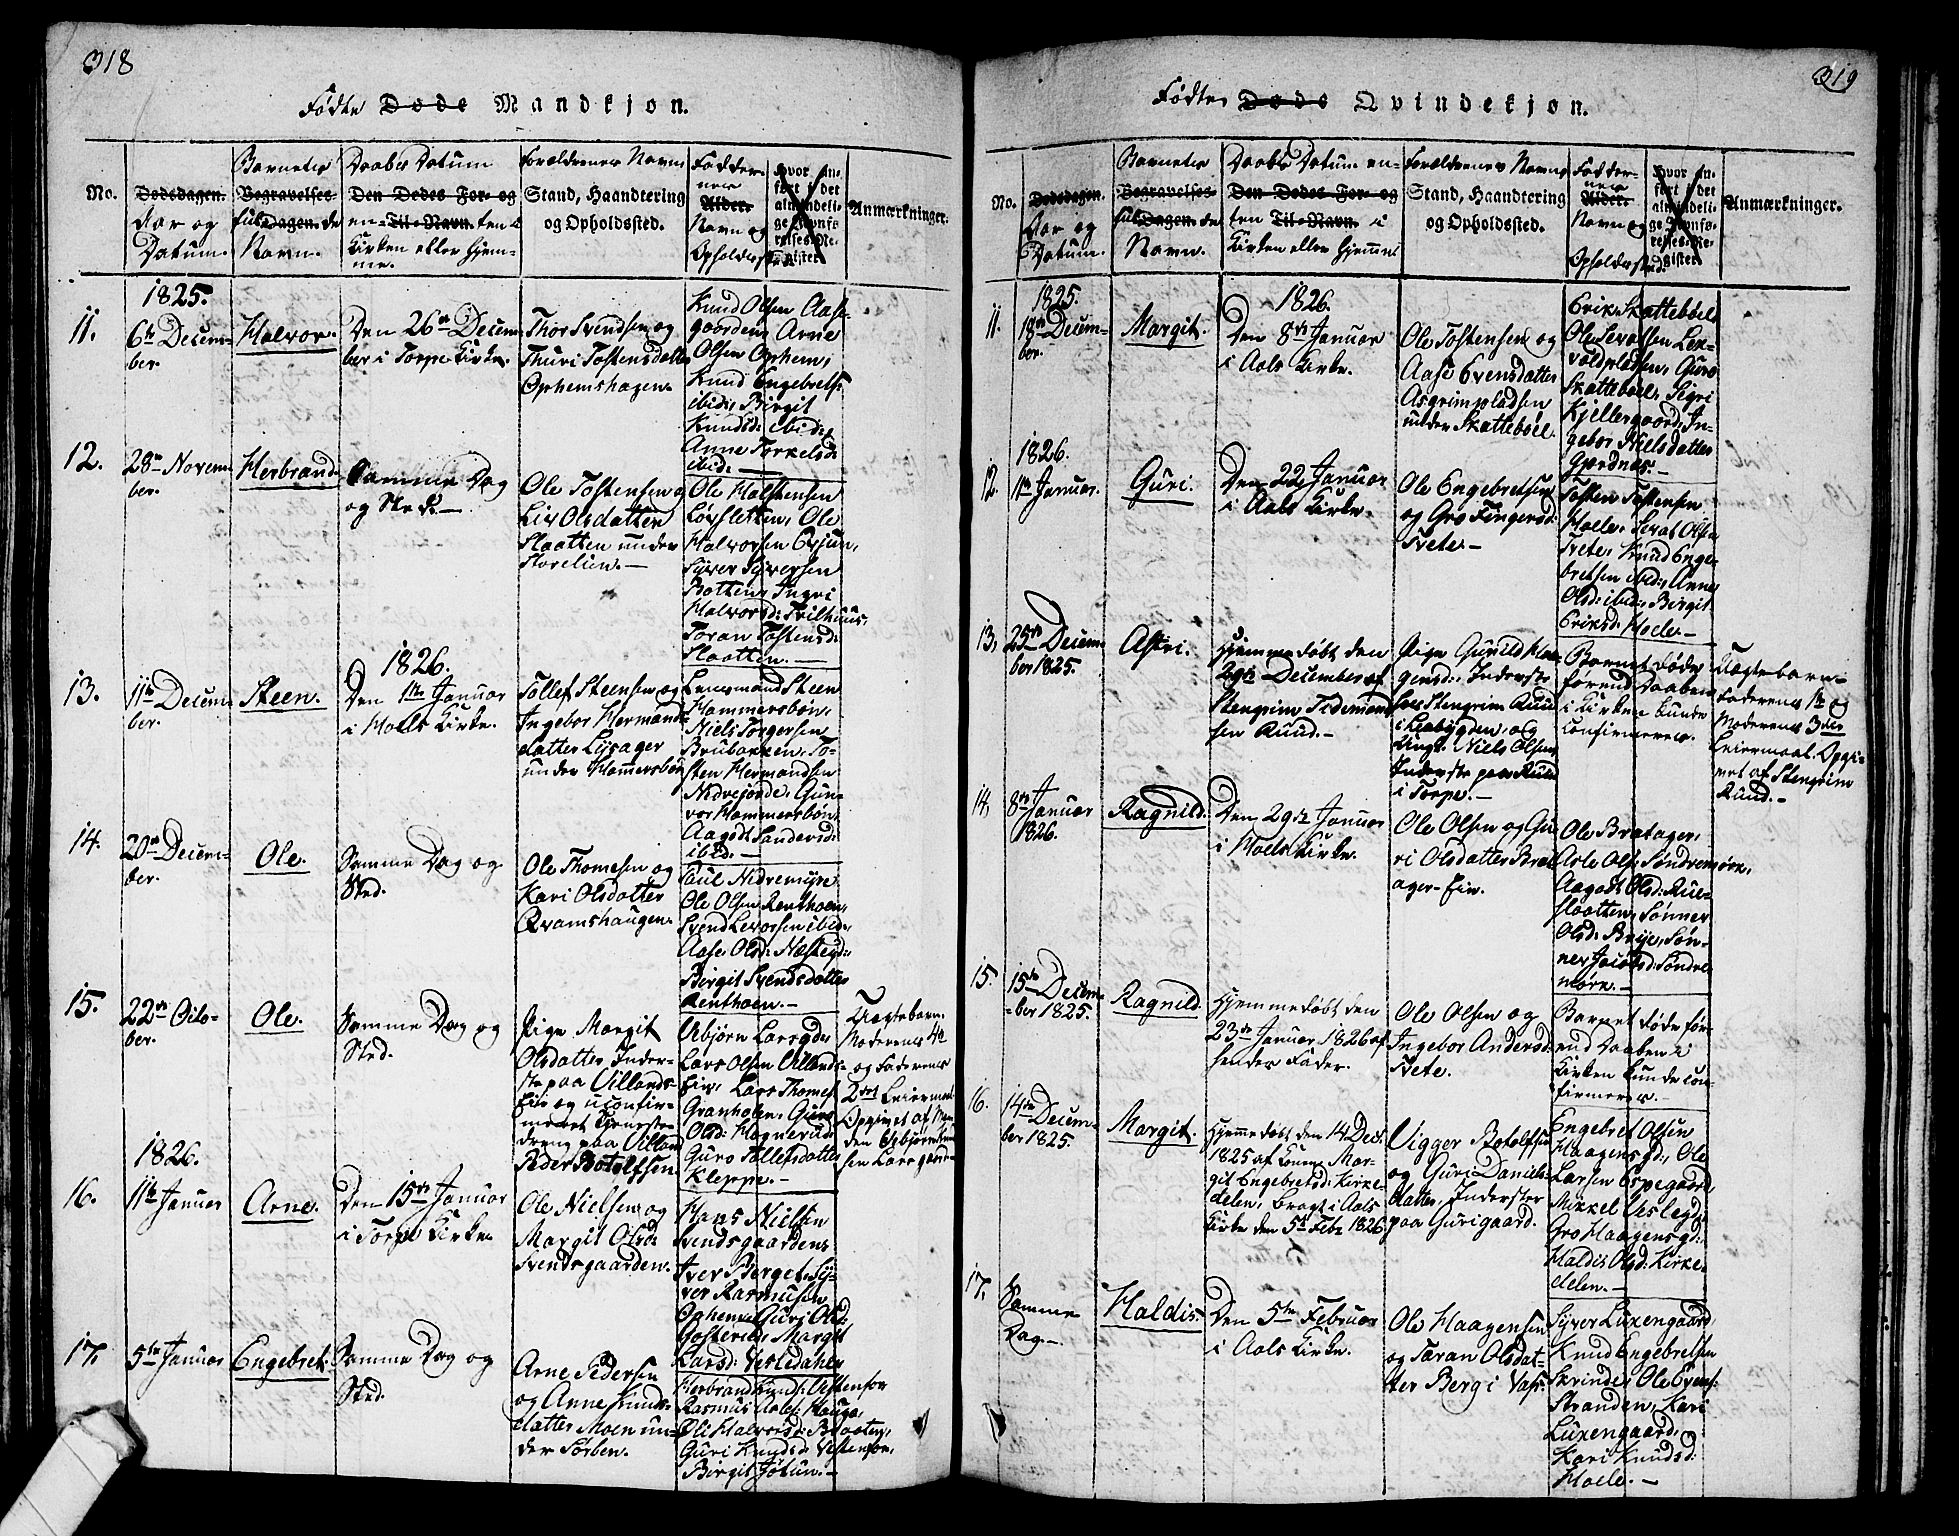 318
Fødte Døde Mandkjøn.
No.
Dødsdagen.
Aar og
Datum.
Barnets
Begravelses
fulde Dagen.
Navn.
Daabs Datum
Den Dødes For- og
en- Til-Navn. ten i
Kirken eller Hjem-
me.
Forældrenes Navn
Stand, Haandtering
og Opholdssted.
Fadder-
nes
Alder.
Navn og
Opholdssted
Hvor an-
ført i det
almindeli-
ge Jevnfø-
relses-Re-
gister.
Anmærkninger.
11.
1825.
6te Decem-
ber.
Halvor.
Den 26de Decem-
ber i Torpe Kirke.
Thor Svendsen og
Thuri Tostensdatter
Ophemshagen.
Knud Olsen Aase-
gaarden, Arne
Olsen Ophem,
Knud Engebrets:
ibid:, Birgit
Knudsd: ibid:,
Anne Torkelsd:
ibid: —
12.
28de Novem-
ber.
Herbrand.
Samme Dag
og Sted. —
Ole Tostensen og
Liv Olsdatter
Slaatten under
Storelien. —
Ole Halstensen
Løvsletten, Ole
Halvorsen Evjun,
Syver Syversen
Botten, Ingri
Halvorsd: Trilhuus,
Toran Tostensd:
Slaatten. —
13.
11te Decem-
ber.
Steen.
1826.
Den 1te Januar
i Hoels Kirke.
Tollef Steensen og
Ingebor Hermands-
datter Lysager
under Hammersbøn
Lensmand Steen
Hammersbøn,
Niels Torgersen
Brubakken, To-
sten Hermandsen
Nidrejorde, Gun-
vor Hammersbøn,
Aagodt Sandersd:
ibid. —
14.
20de Decem-
ber.
Ole.
Samme Dag og
Sted.
Ole Thomesen og
Kari Olsdatter
Qvamshaugen.
Paul Nidremyre
Ole Olsen Renthoen,
Svend Levorsen ibid:,
Aase Olsd:
Birgit Svendsdatter
Renthoen. —
15.
22de Octo-
ber.
Ole.
Samme Dag og
Sted.
Pige Margit
Olsdatter Inder-
ste paa Villands-
eie og uconfir-
meret Tjeneste-
dreng paa Villand
Peder Botolfsen.
Asbjørn Larsgde
Lars Olsen Villands-
eie, Lars Thomes:
Granholen, Guro
Olsd: Hagnerud
Guro Tollefsdatter
Kleppe. —
Uægtebarn.
Moderens 4de
og Faderens
2det Leiermaal
Opgivet af Man-
den Esbjørn Knud-
sen Larsgaard
16.
1826.
11te Januar
Arne.
Den 15de Januar
i Torpe Kirke.
Ole Nielsen og
Margit Olsd:
Svendsgaarden.
Hans Nielsen
Svendsgaarden,
Iver Berget, Sy-
ver Rasmusen
Ophem, Guri Olsd:
Golberie, Margit
Larsd: Vesledalen
17.
5te Januar
Engebret.
Samme Dag og
Sted.
Arne Pedersen
og Anne Knuds-
datter Moen un-
der Sørben.
Herbrand Knuds: Vestenfor
Rasmus Hauga,
Oli Halvorsd: Braaten,
Guri Knudsd: Vestenfor,
Birgit Jøtun. —
319
Fødte Døde Qvindekjøn.
No.
Dødsdagen.
Aar og
Datum.
Barnets
Begravelses-
fulde Dagen.
Navn.
Daabs Datum en-
Den Dødes For- og
ten Til-Navn. i
Kirken eller Hjemmet
Forældrenes Navn
Stand, Haandtering
og Opholdssted.
Fadder-
nes
Alder.
Navn og
Opholdssted.
Hvor an-
ført i det
almindeli-
ge Jevnfø-
relses-Re-
gister.
Anmærkninger.
11.
1825.
18de Decem-
ber.
Margit.
1826.
Den 8de Januar
i Aals Kirke.
Ole Tostensen og
Aase Evensdatter
Asgrimspladsen
under Skattebøel.
Erik Skattebøel
Ole Levorsen Lex-
voldpladsen, Guro
Skattebøel, Sigri
Kjellergaard, In-
gebor Nielsdatter
Gjerdnæs. —
12.
1826.
11te Januar.
Guri.
Den 22de Januar
i Aals Kirke.
Ole Engebretsen
og Gro Fingersd:
Tvete. —
Tosten Tostensen
Hoele, Sevat Olsen
Tvete, Knud Enge-
bretsen ibid:, Anne
Olsd: ibid:, Birgit
Eriksd: Hoele. —
13.
25de Decem-
ber 1825.
Astri.
Hjemmedøbt den
29de December af
Stengrim Tidemand-
sen Ruud. —
Pige Gunild Haa-
gensd: Inderste
hos Stengrim Ruud
i Leebygden, og
Ungk. Niels Olsen
Inderste paa Ruud
i Torpe. —
Barnet døde
førend Daaben
i Kirken kunde
confirmeres.
Uægtebarn
Faderens 1te og
Moderens 3die
Leiermaal. Opgi-
vet af Stengrim
Ruud. —
14.
8de Januar
1826.
Ragnild.
Den 29de Januar
i Hoels Kirke.
Ole Olsen og Gu-
ri Olsdatter Brat-
ager-eie.
Ole Bratager,
Asle Ols: Søndremøre,
Aagodt Olsd: Rue-
slaatten, Sønner
Olsd: Brye, Søn-
nev Jacobsd: Søndre-
møre. —
15.
15de Decem-
ber 1825.
Ragnild.
Hjemmedøbt den
23de Januar 1826 af
hendes Fader.
Ole Olsen og
Ingebor Andersd:
Tvete.
Barnet døde før-
end Daaben i
Kirken kunde con-
firmeres. —
16.
14de Decem-
ber 1825.
Margit.
Hjemmedøbt den 14 Dec:
1825 af Konen Mar-
git Engebretsd: Kirke-
delen, bragt i Aals
Kirke den 5te Febr 1826.
Vigger Botolfsen
og Guri Daniels-
datter, Inderster
paa Gurigaard.
Engebret Olsen
Haagensgd:, Ole
Larsen Espegaard,
Mikkel Veslegd:
Gro Haagensgd:
Haldis Olsd: Kirke-
delen. —
17.
Samme
Dag. —
Haldis.
Den 5te Februar
i Aals Kirke.
Ole Haagensen
og Taran Olsdat-
ter Berg i Vats.
Syver Luxengaard,
Knud Engebretsen
Skrinde, Ole Evens:
Stranden, Kari
Luxengaard,
Kari Knudsd:
Hoele. —